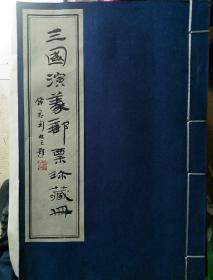 三國演義郵票珍藏冊